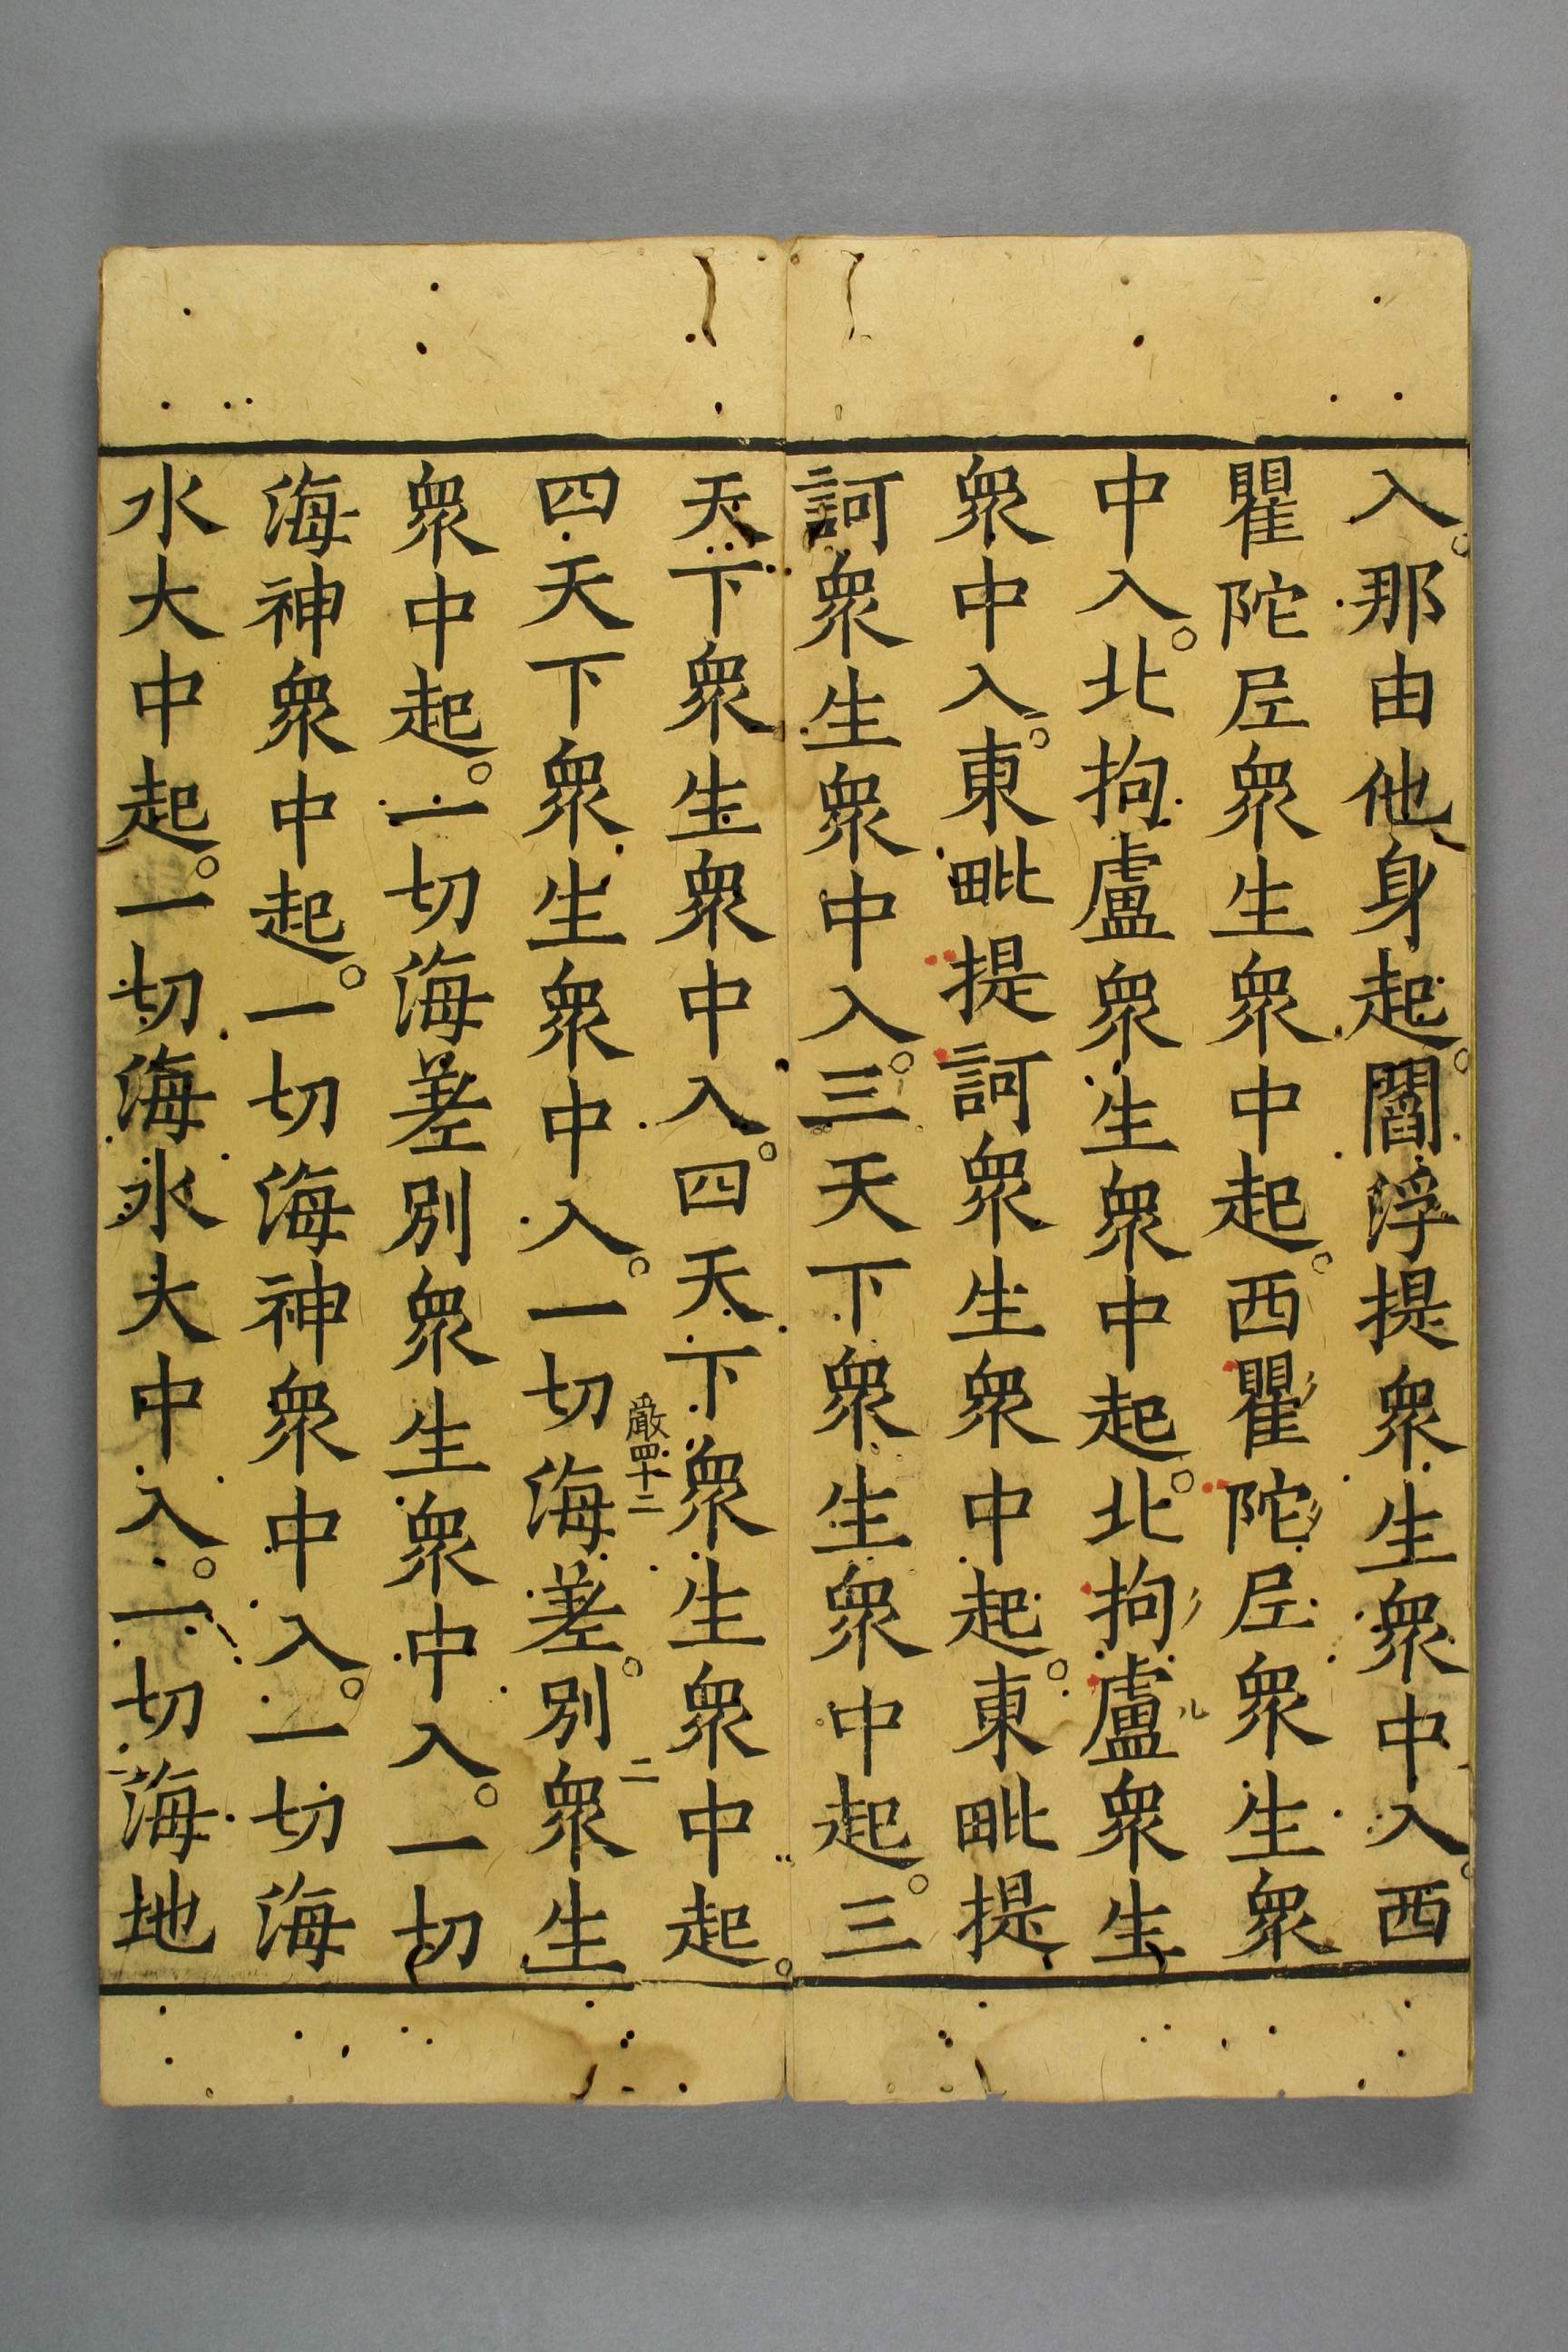 入。那由他身起。閻浮提衆生衆中入。西
瞿陀尼衆生衆中起。西瞿陀尼衆生衆
中入。北拘盧衆生衆中起。北拘盧衆生
衆中入。東毗提訶衆生衆中起。東毗提
訶衆生衆中入。三天下衆生衆中起。三
天下衆生衆中入。四天下衆生衆中起。
四天下衆生衆中入。一切海差別。衆生
嚴四十二 二
衆中起。一切海差別衆生衆中入。一切
海神衆中起。一切海神衆中入。一切海
水大中起。一切海水大中入。一切海地